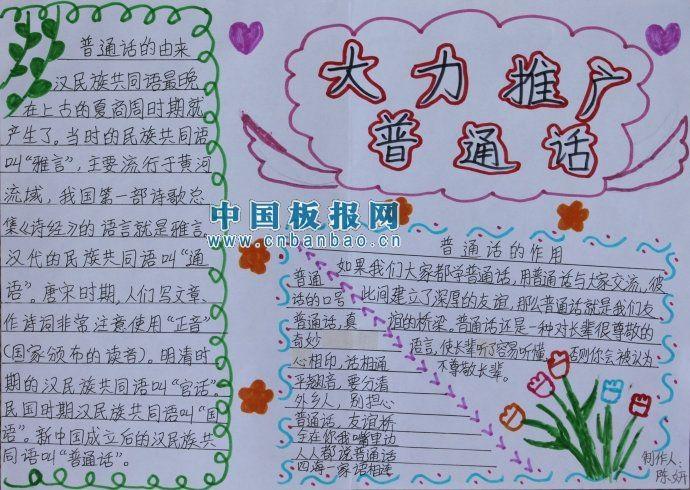 普通话的由来
汉民族共同语最晚
在上古的夏商周时期就
产生了。当时的民族共同语
叫“雅言”，主要流行于黄河
流域，我国第一部诗歌总
集《诗经》的语言就是雅言
汉代的民族共同语叫“通
语”。唐宋时期，人们写文章、
作诗词非常注意使用“正音”
（国家颁布的读音）。明清时
期的汉民族共同语叫“官话”。
民国时期汉民族共同语叫“国
语”。新中国成立后的汉民族共
同语叫“普通话”。
大力推广
普通话
中国板报网
www.cnbanbao.cn
普通话的作用
如果我们大家都学普通话，用普通话与大家交流，彼
此间建立了深厚的友谊，那么普通话就是我们友
谊的桥梁。普通话还是一种对长辈很尊敬的
语言，使长辈听了容易听懂，否则你会被认为
不尊敬长辈。
普通
话的口号
普通话，真
奇妙
心相印，话相通
平翘音，要分清
外乡人，别担心
普通话，友谊桥
字在你我嘴里边
人人都说普通话
四海一家语相连
制作人：
陈妍